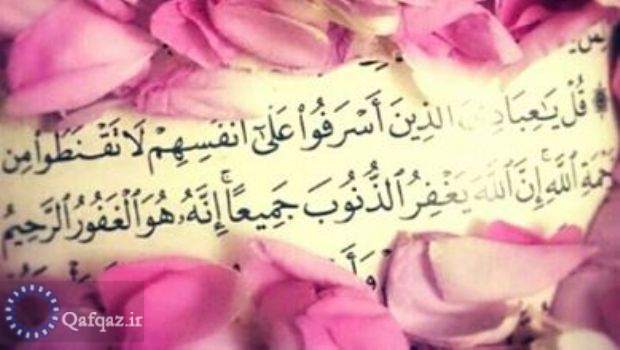 قُلْ يَٰعِبَادِىَ ٱلَّذِينَ أَسْرَفُوا۟ عَلَىٰٓ أَنفُسِهِمْ لَا تَقْنَطُوا۟ مِن
رَّحْمَةِ ٱللَّهِ ۚ إِنَّ ٱللَّهَ يَغْفِرُ ٱلذُّنُوبَ جَمِيعًا ۚ إِنَّهُۥ هُوَ ٱلْغَفُورُ ٱلرَّحِيمُ
Qafqaz.ir